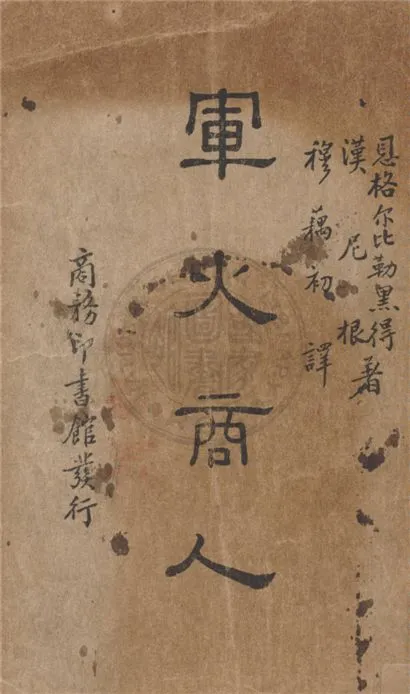 恩格尔比勒黑得
漢尼根著
穆藕初譯
軍火商人
商務印書館發行